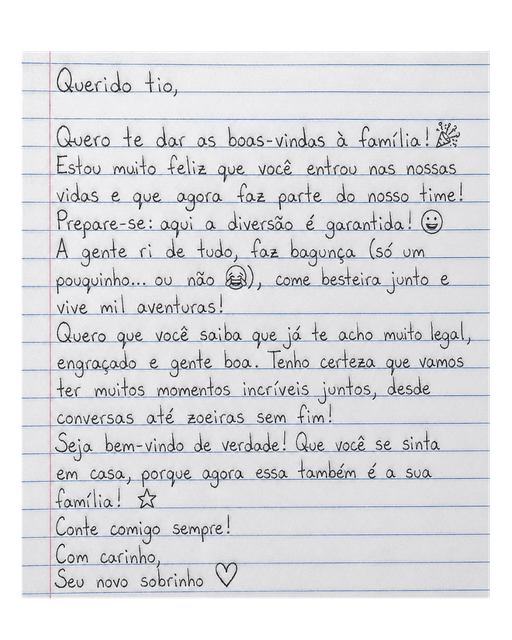 Querido tio,
Quero te dar as boas-vindas à família! 🎉
Estou muito feliz que você entrou nas nossas
vidas e que agora faz parte do nosso time!
Prepare-se: aqui a diversão é garantida! 😀
A gente ri de tudo, faz bagunça (só um
pouquinho... ou não 😂), come besteira junto e
vive mil aventuras!
Quero que você saiba que já te acho muito legal,
engraçado e gente boa. Tenho certeza que vamos
ter muitos momentos incríveis juntos, desde
conversas até zoeiras sem fim!
Seja bem-vindo de verdade! Que você se sinta
em casa, porque agora essa também é a sua
família! ☆
Conte comigo sempre!
Com carinho,
Seu novo sobrinho ♡